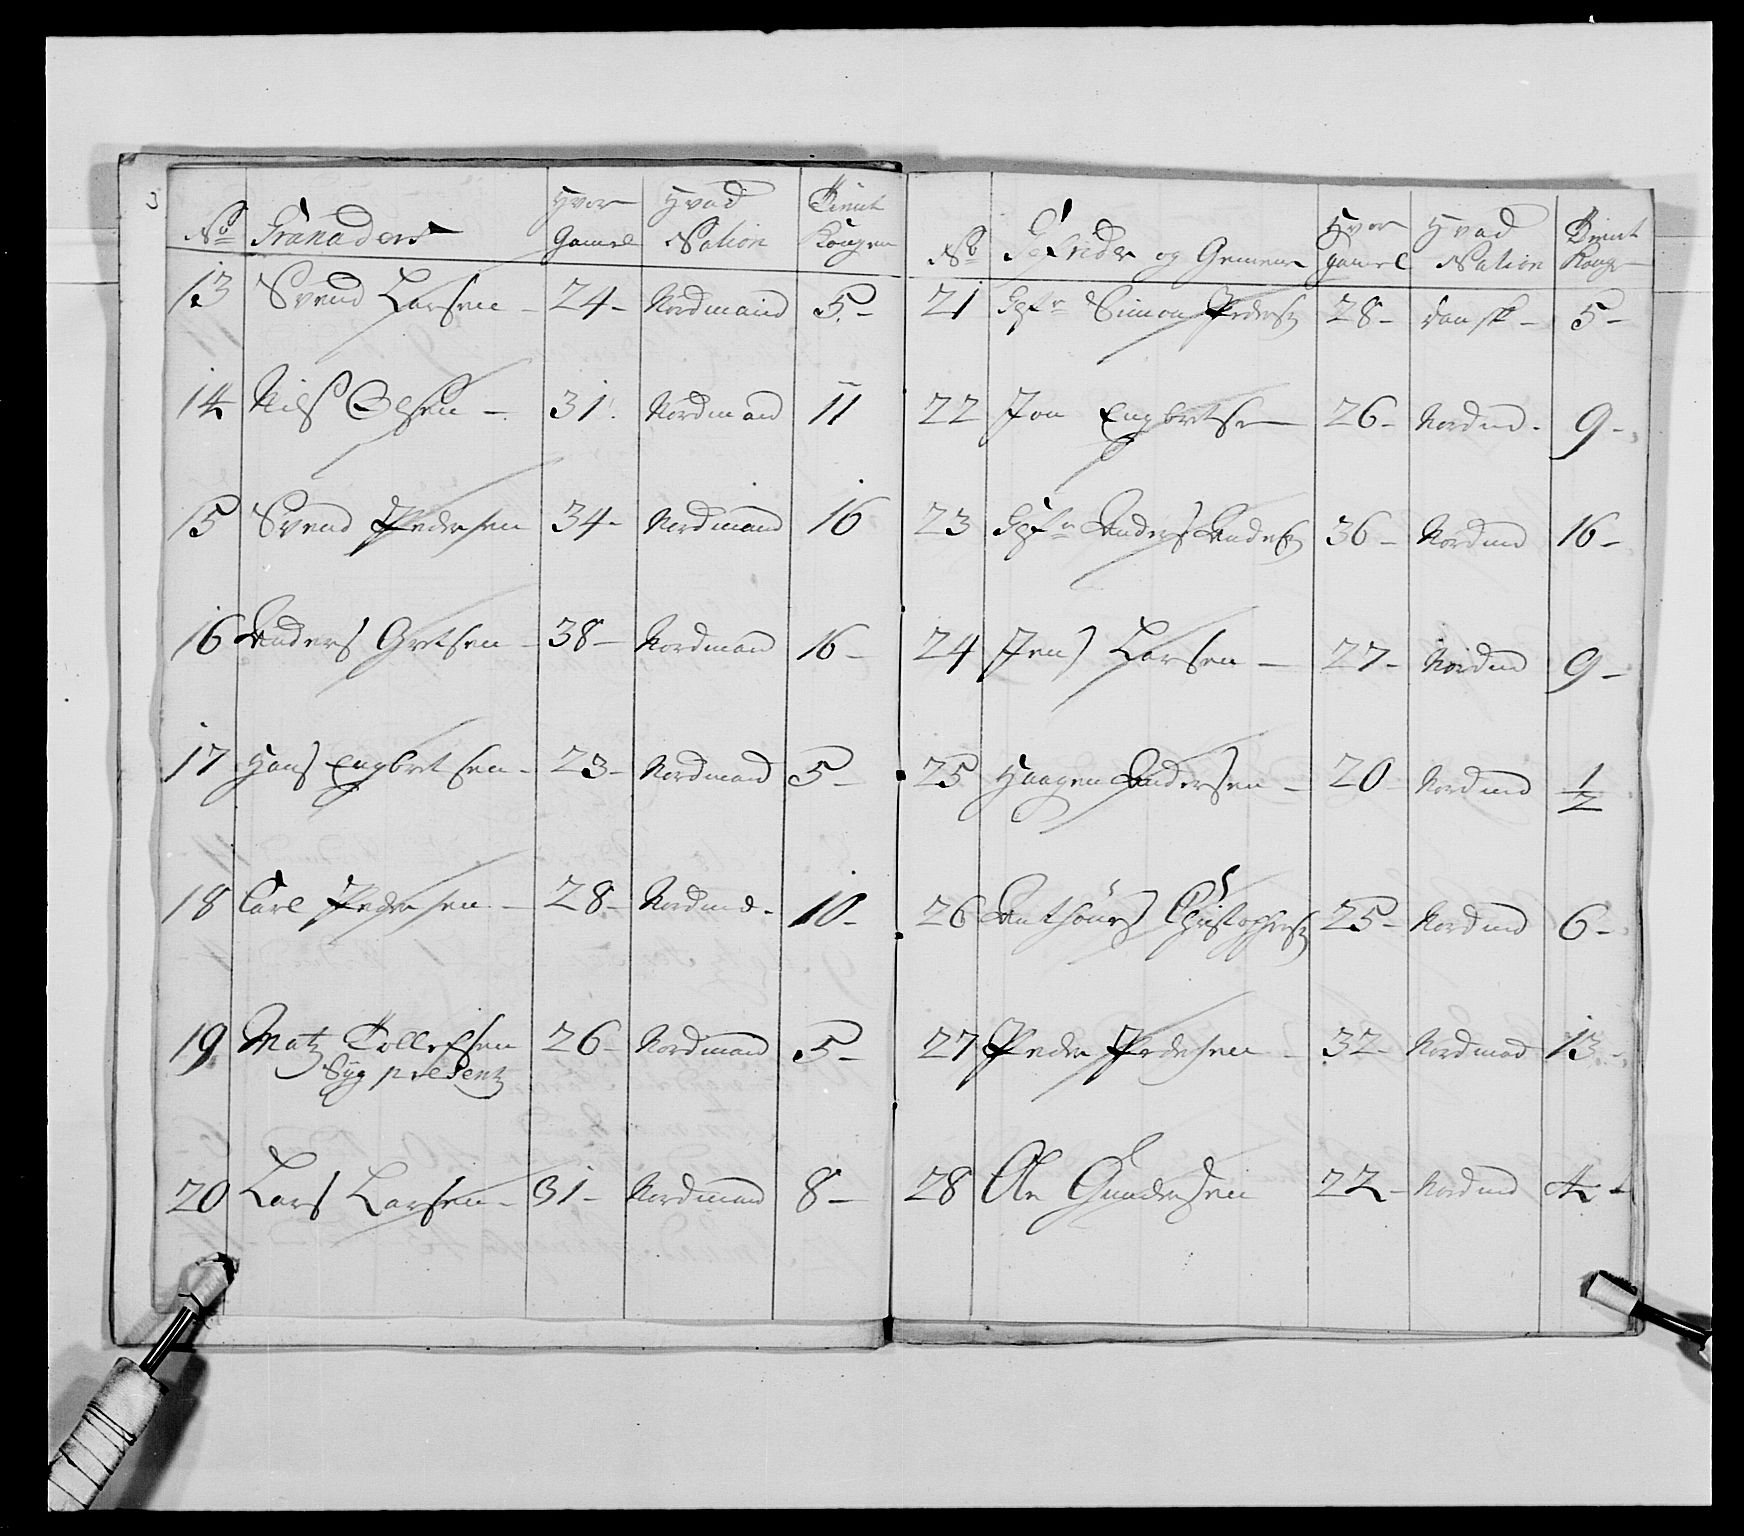 3
No Granaders Hvor Gamel Hvad Nation Tient Kongen
13 Svend Larsen - 24 - Nordmand 5 -
14 Nils Olsen - 31. Nordmand 11
15 Svend Pedersen 34 - Nordmand 16
16 Anders Gretsen - 38 - Nordman 16 -
17 Hans Engbretsen - 23 - Nordmand 5 -
18 Carl Pedersen - 28 - Nordmd. 10 -
19 Matz Tollefsen 26 - Nordmand 5 -
Syg presentz
20 Lars Larsen - 31 - Nordmand 8 -
No Gefrider og Gemene Hvor Gamel Hvad Nation Tient Konge
21 Gefr Simon Peders 28 - dansk - 5 -
22 Jon Engbretse 26 - Nordmd - 9 -
23 Gefr Anders Anders 36 - Nordmd 16 -
24 Jens Larsen - 27 - Nordmd 9 -
25 Haagen Andersen - 20 - Nordmd 1/2
26 Christophers 25 - Nordmd 6 -
27 Peder Pedersen - 32 - Nordmd 13 -
28 Ole Gundersen 22 - Nordmd 4 -